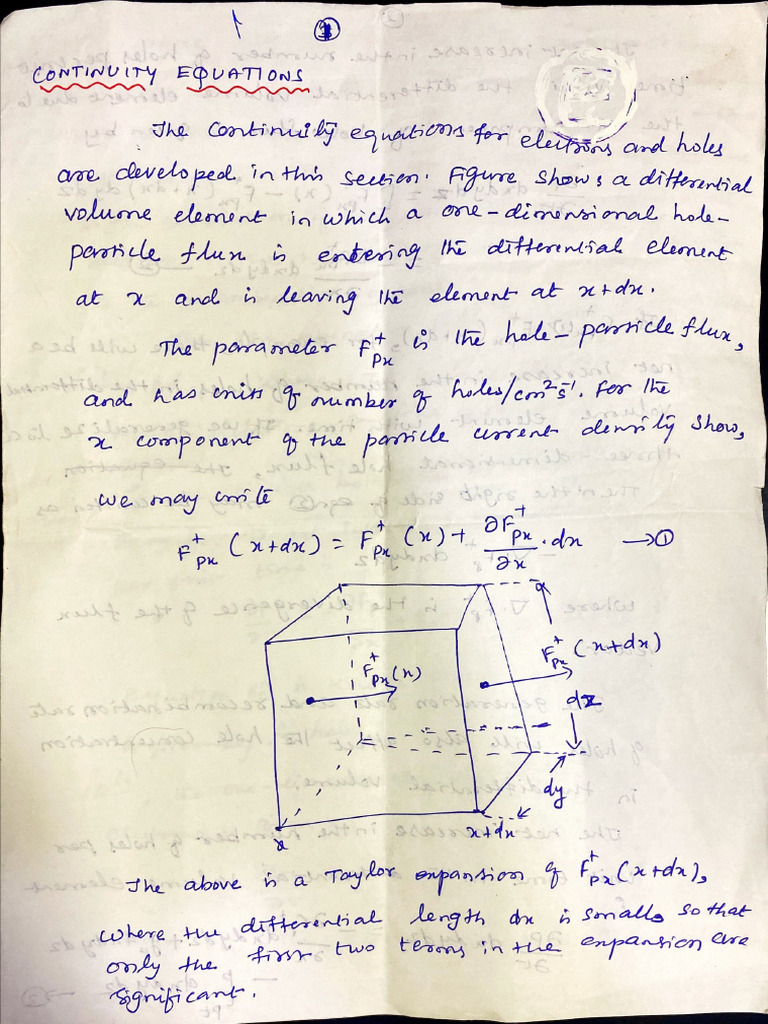 1
CONTINUITY EQUATIONS
The Continuity equations for electrons and holes
are developed in this section. Figure shows a differential
volume element in which a one-dimensional hole-
particle flux is entering the differential element
at x and is leaving the element at x+dx.
The parameter F⁺px is the hole-particle flux,
and has units of number of holes/cm²s⁻¹. For the
x component of the particle current density show,
we may write
F⁺px (x+dx) = F⁺px (x) + ∂F⁺px/∂x · dx → ①
F⁺px(x)
F⁺px (x+dx)
dz
dy
x
x+dx
The above is a Taylor expansion of F⁺px (x+dx),
where the differential length dx is small, so that
only the first two terms in the expansion are
significant.